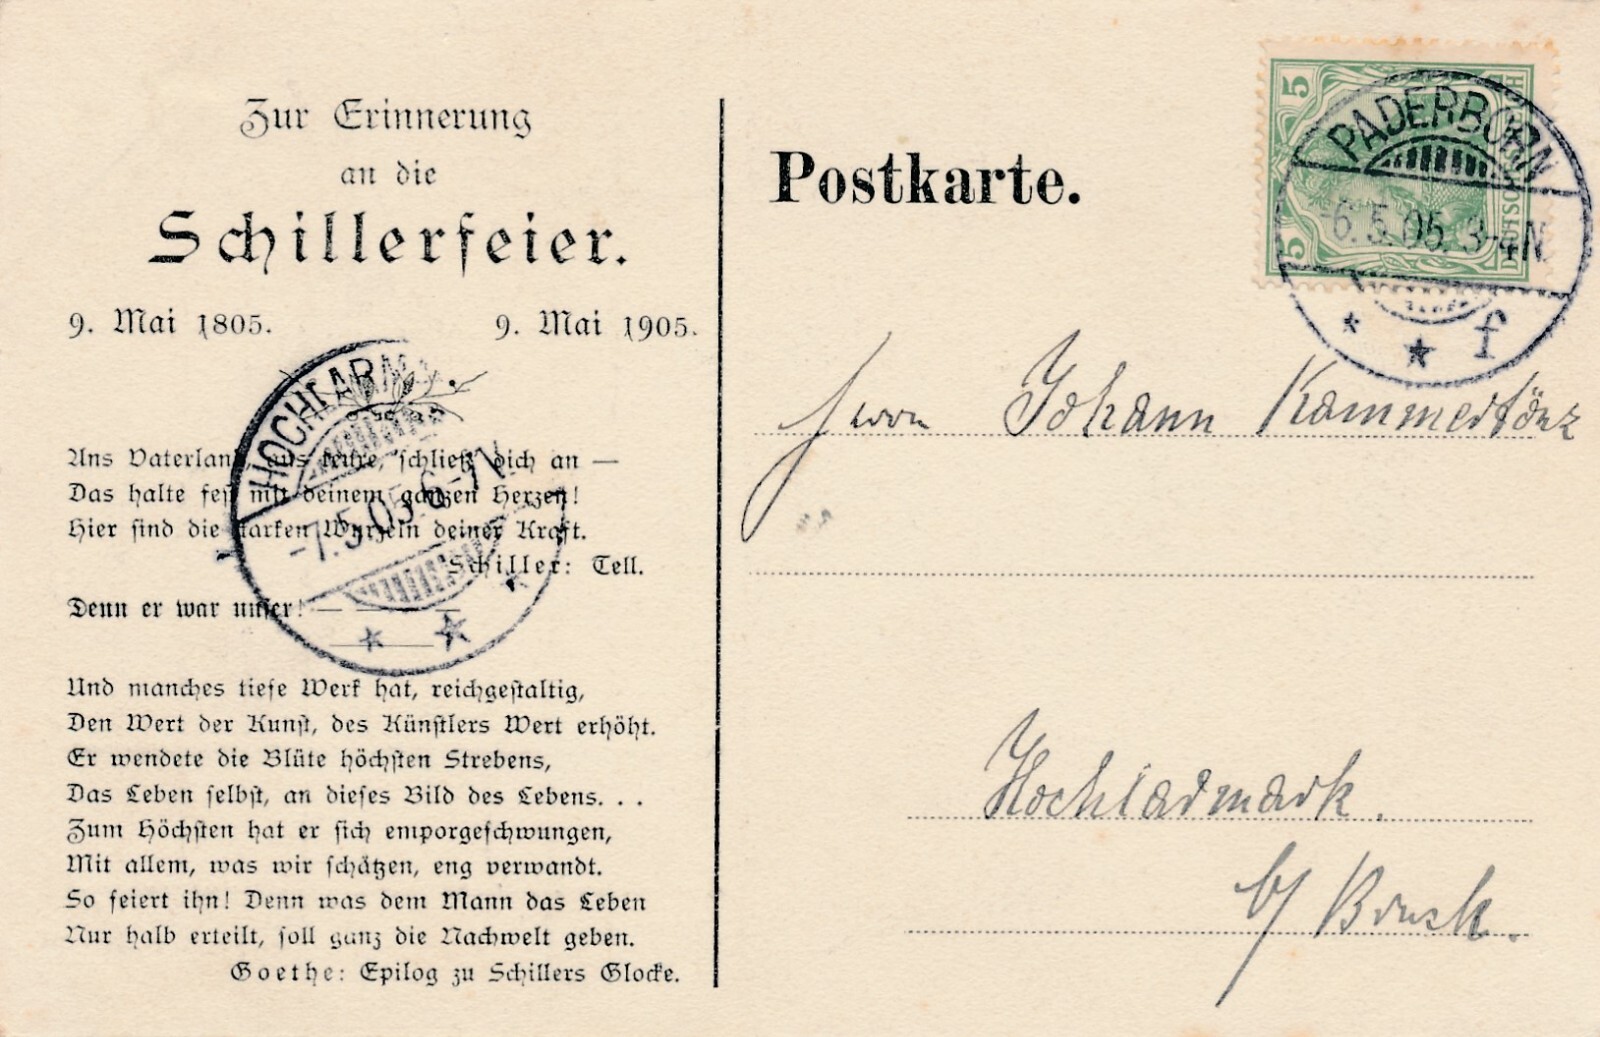 Zur Erinnerung
an die
Schillerfeier.
9. Mai 1805. 9. Mai 1905.
Ans Vaterland, ans teure, schließ' dich an —
Das halte fest mit deinem ganzen Herzen!
Hier sind die starken Wurzeln deiner Kraft.
Schiller: Tell.
Denn er war unser! — — —
Und manches tiefe Werk hat, reichgestaltig,
Den Wert der Kunst, des Künstlers Wert erhöht.
Er wendete die Blüte höchsten Strebens,
Das Leben selbst, an dieses Bild des Lebens. . .
Zum Höchsten hat er sich emporgeschwungen,
Mit allem, was wir schätzen, eng verwandt.
So feiert ihn! Denn was dem Mann das Leben
Nur halb erteilt, soll ganz die Nachwelt geben.
Goethe: Epilog zu Schillers Glocke.
HOCHLARMARK
-7.5.05.6-7N
Postkarte.
5
5
DEUTSCHES REICH
PADERBORN
-6.5.05.3-4N.
* * f
Herrn Johann Kammertönz
Hochlarmark.
b/ Bruch.